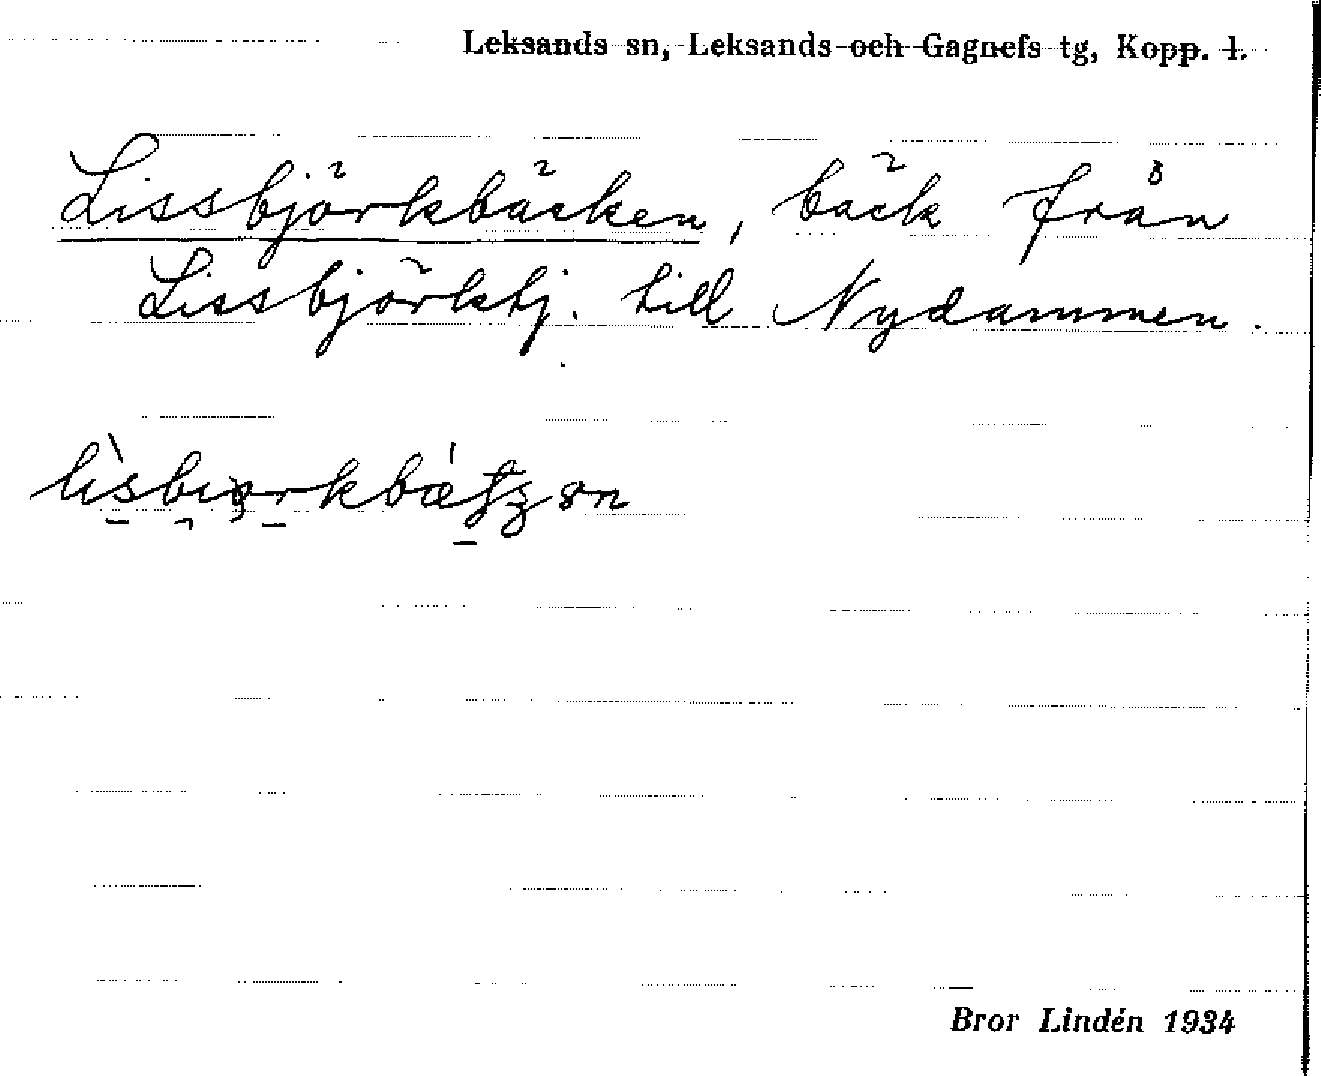 Leksands sn, Leksands och Gagnefs tg, Kopp. l.
Lissbjörkbäcken, bäck från
Lissbjörktj. till Nydammen.
Bror Lindén 1934